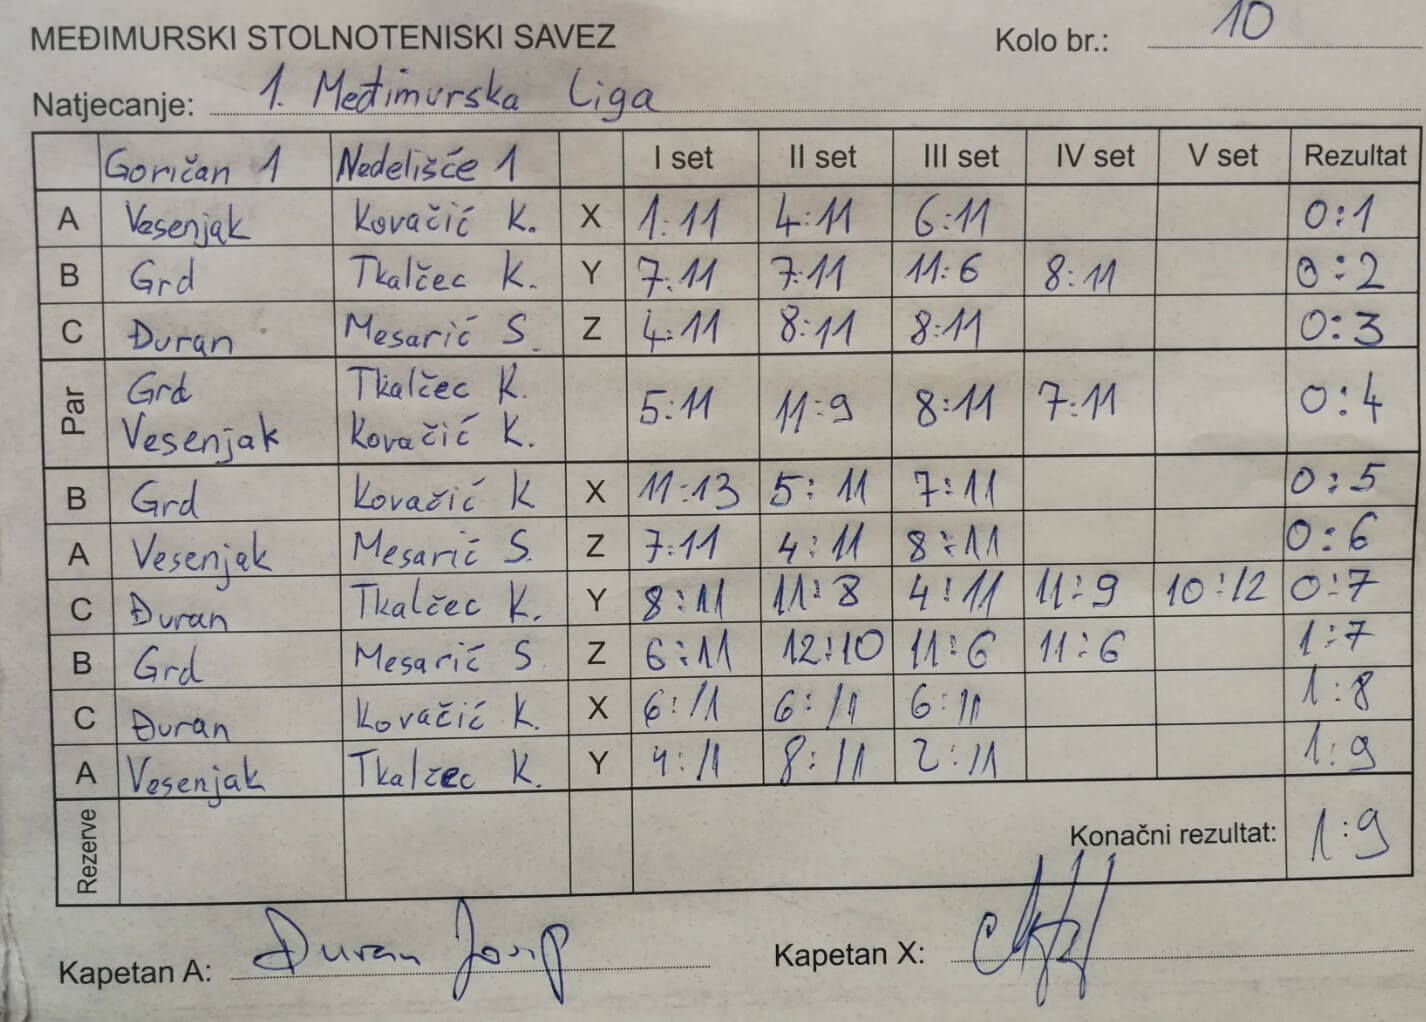 MEĐIMURSKI STOLNOTENISKI SAVEZ Kolo br.: 10
Natjecanje: 1. Međimurska Liga
Goričan 1 Nedelišće 1 I set II set III set IV set V set Rezultat
A Vesenjak Kovačić K. X 1:11 4:11 6:11 0:1
B Grd Tkalčec K. Y 7:11 7:11 11:6 8:11 0:2
C Đuran Mesarić S. Z 4:11 8:11 8:11 0:3
Par Grd Tkalčec K. 5:11 11:9 8:11 7:11 0:4
Vesenjak Kovačić K.
B Grd Kovačić K X 11:13 5:11 7:11 0:5
A Vesenjak Mesarić S. Z 7:11 4:11 8:11 0:6
C Đuran Tkalčec K. Y 8:11 11:8 4:11 11:9 10:12 0:7
B Grd Mesarić S Z 6:11 12:10 11:6 11:6 1:7
C Đuran Kovačić K. X 6:11 6:11 6:11 1:8
A Vesenjak Tkalčec K. Y 4:11 8:11 2:11 1:9
Rezerve Konačni rezultat: 1:9
Kapetan A: Đuran Josip Kapetan X: